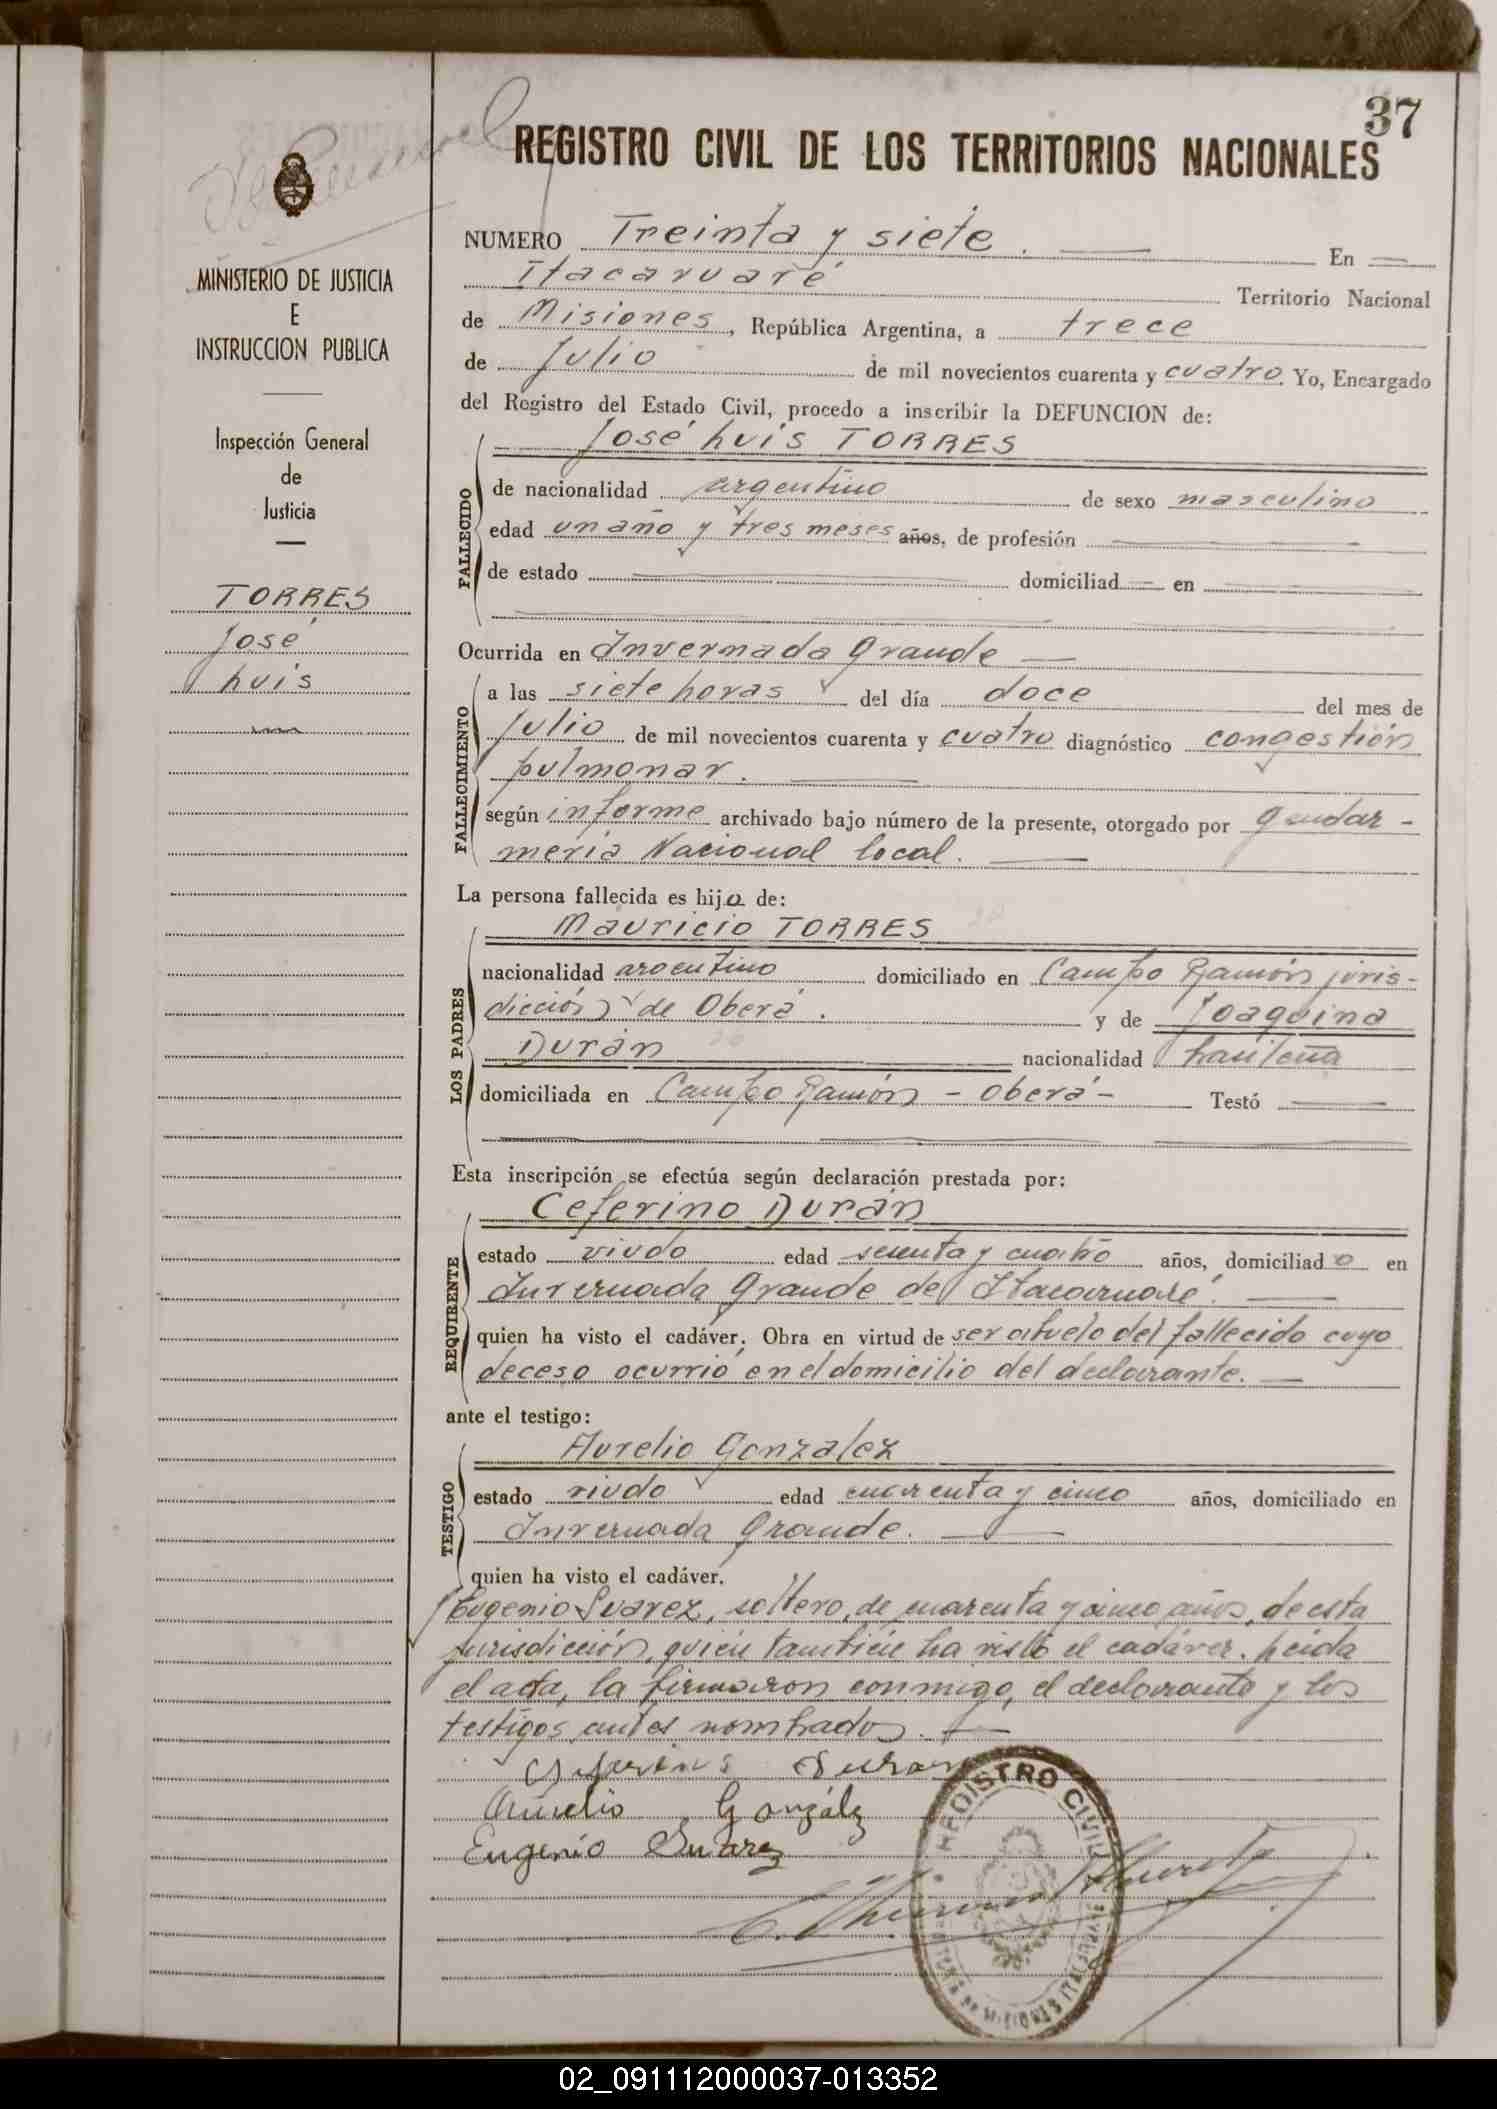 37
REGISTRO CIVIL DE LOS TERRITORIOS NACIONALES
MINISTERIO DE JUSTICIA
E
INSTRUCCION PUBLICA
Inspección General
de
Justicia
TORRES
José
Luis
NUMERO Treinta y siete. En
Itacaruaré Territorio Nacional
de Misiones, República Argentina, a trece
de Julio de mil novecientos cuarenta y cuatro. Yo, Encargado
del Registro del Estado Civil, procedo a inscribir la DEFUNCION de:
José Luis TORRES
FALLECIDO
de nacionalidad argentino de sexo masculino
edad un año y tres meses años, de profesión
de estado domiciliad en
Ocurrida en Invernada Grande
FALLECIMIENTO
a las siete horas del día doce del mes de
Julio de mil novecientos cuarenta y cuatro diagnóstico congestión
pulmonar.
según informe archivado bajo número de la presente, otorgado por Gendar-
mería Nacional local.
La persona fallecida es hijo de:
Mauricio TORRES
LOS PADRES
nacionalidad argentino domiciliado en Campo Ramón juris-
dicción de Oberá. y de Joaquina
Durán nacionalidad brasileña
domiciliada en Campo Ramón - Oberá - Testó
Esta inscripción se efectúa según declaración prestada por:
Ceferino Durán
REQUIRENTE
estado viudo edad sesenta y cuatro años, domiciliado en
Invernada Grande de Itacaruaré.
quien ha visto el cadáver. Obra en virtud de ser abuelo del fallecido cuyo
deceso ocurrió en el domicilio del declarante.
ante el testigo:
Aurelio Gonzalez
TESTIGO
estado viudo edad cuarenta y cinco años, domiciliado en
Invernada Grande.
quien ha visto el cadáver.
Eugenio Suarez, soltero, de cuarenta y cinco años, de esta
jurisdicción, quien también ha visto el cadáver. Leída
el acta, la firmaron conmigo, el declarante y los
testigos antes nombrados.
Ceferino Duran
Aurelio Gonzálz
Eugenio Suarez
REGISTRO CIVIL
02_091112000037-013352